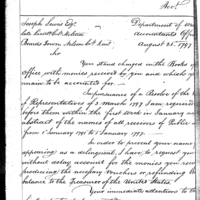 Joseph Lewis Esqr. Department of War
late Lieut 6th Regt Accountants Office
Prands Town, Nelson Co Kent August 25. 1797
Sir
You stand charged in the Books of
Office with monies received by you and which
main to be accounted for.
In pursuance of a Resolve of the
of Representatives of 3 March 1797 I am required
before them within the first week in January
abstract of the names of all receivers of Public
from 1 January 1791 to 1 January 1797.
In order to prevent your name
appearing as a delinquent, I have to request you
without delay account for the monies you
producing the necessary Vouchers or refunding the
balance to the Treasurer of the United States.
Your immediate attention to the